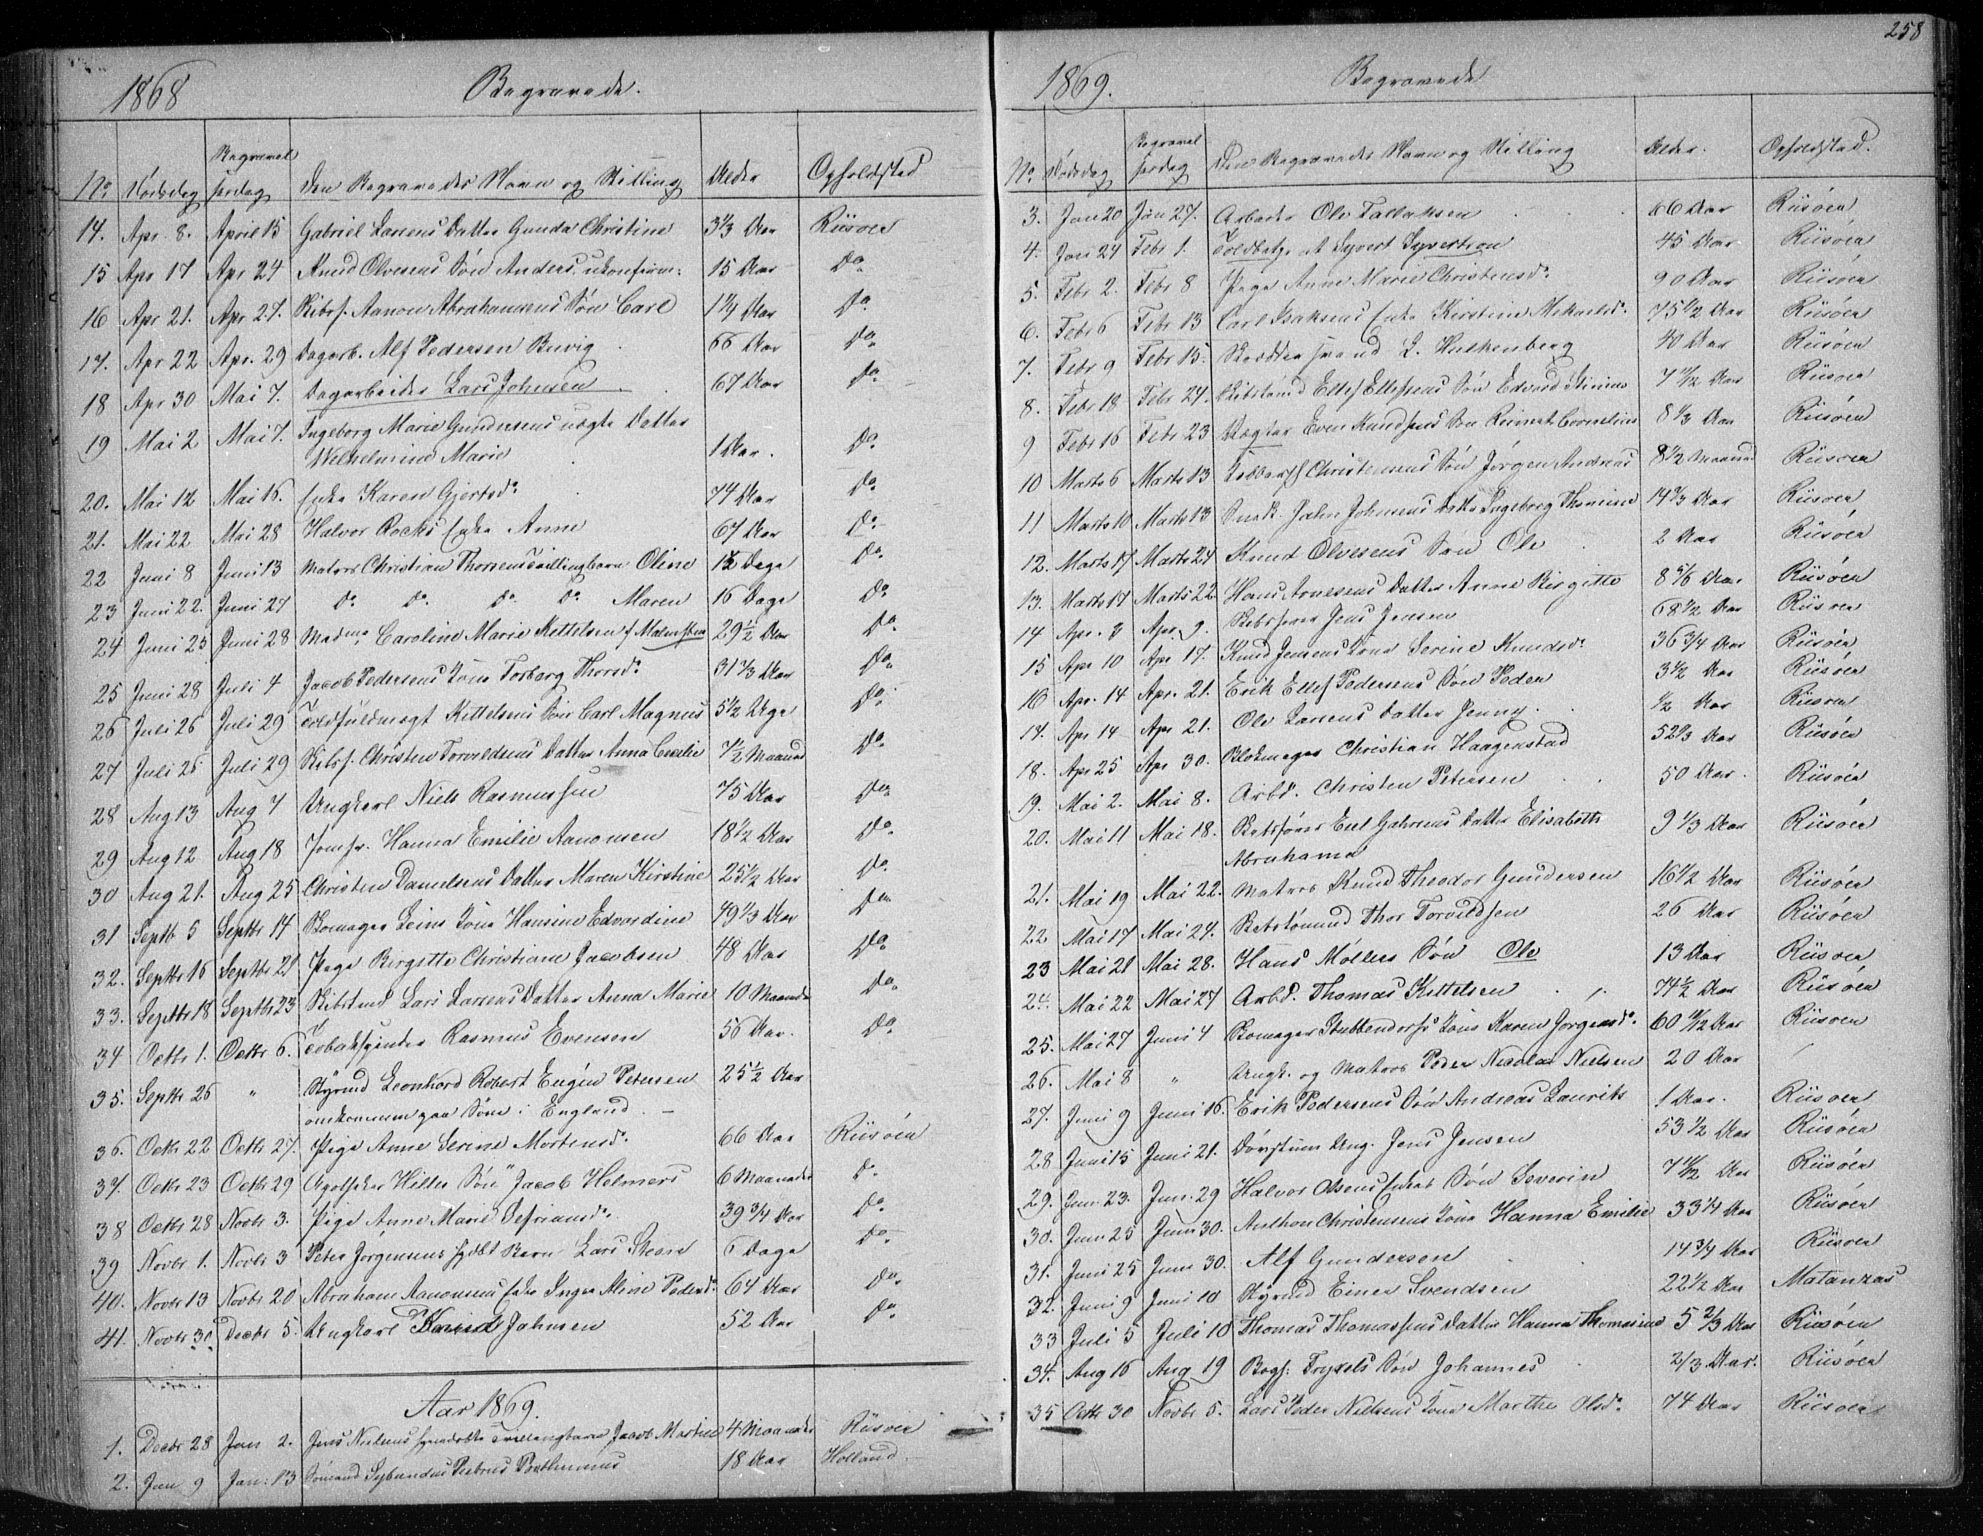 258
1868 Begravede.
No Dødsdag Begravelsesdag Den Begravedes Navn og Stilling Alder Opholdsted
14. Apr. 8. April 15 Gabriel Larsens Datter Gunda Christine 3 1/3 Aar Riisøer
15 Apr 17 Apr 24 Knud Olvesens Søn Anders, ukonfirm: 15 Aar Do
16 Apr 21. Apr 27. Skibsf. Aanon Abrahamsens Søn Carl 1 3/4 Aar Do
17. Apr 22 Apr. 29 Dagarb. Alf Pedersen Buvig 66 Aar Do
18 Apr 30 Mai 7. Dagarbeider Lars Johnsen 67 Aar Do
19 Mai 2 Mai 7. Ingeborg Marie Gundersens uægte Datter
Wilhelmine Marie 1 Aar. Do
20. Mai 12 Mai 16. Enke Karen Gjertsdr. 74 Aar Do
21. Mai 22 Mai 28 Halvor Roeks Enke Anne 67 Aar Do
22 Juni 8 Juni 13 Matros Christian Thorsens Tvillingbarn Oline Dage Do
23 Juni 22. Juni 27 Do Do Do Do Maren 16 Dage Do
24 Juni 25 Juni 28 Madme Caroline Marie Kittelsen f. 29 1/2 Aar Do
25 Juni 28 Juli 4 Jacob Pedersens Kone Torborg Thorsdr. 31 1/3 Aar Do
26 Juli 26 Juli 29 Toldfuldmægt Kittelsens Søn Carl Magnus 5 1/2 Uge Do
27 Juli 25 Juli 29 Skibsf. Christen Torvildsens Datter Anna Emilie 7 1/2 Maaned Do
28 Aug 13 Aug 7 Ungkarl Niels Rasmussen 75 Aar Do
29 Aug 12 Aug 18 Jomfr. Hanna Emilie Aanonsen 18 1/2 Aar Do
30 Aug 21. Aug 25 Christen Danielsens Datter Maren Kirstine 25 1/2 Aar Do
31 Septb 5 Septbr 14 Bomager Leins Kone Hansine Edvardine 49 1/3 Aar Do
32. Septbr 16 Septbr 21 Pige Birgitte Christiane Jacobsen 48 Aar Do
33. Septbr 18 Septbr 23 Skibstmd Lars Larsens Datter Anna Marie 10 Maaneder Do
34 Octbr 1. Octbr 6. Tobakspinder Rasmus Evensen 56 Aar. Do
35. Septbr 26 " Styrmd Leonhard Robert Eugén Petersen 25 1/2 Aar
omkommen paa Søen i England –
36. Octbr 22 Octbr 27. Pige Anne Serine Mortensdr. 66 Aar Riisøer
37. Octbr 23 Octbr 29 Apotheker Hilles Søn Jacob Helmers 6 Maaneder Do
38 Octbr 28 Novbr 3. Pige Anne Marie Sefriansdr. 39 3/4 Aar Do
39 Novbr 1. Novbr 3 Peter Jørgensens Barn Lars Steen 6 Dage Do
40. Novbr 13 Novbr 20 Abraham Aanonsens Enke Inger Aline Pedersdr 64 Aar Do
41. Novbr 30 Decbr 5. Ungkarl Knud Johnsen 52 Aar Do
Aar 1869.
1. Decbr 28 Jan 2. Jens Nielsens Tvillingbarn Jacob Martin 4 Maaneder Riisøer
2. Jan 9 Jan: 13 Sømand Sybrandus Petrus Posthumus 18 Aar Holland.
1869. Begravede
No. Dødsdag Begravelsesdag Den Begravedes Navn og Stilling Alder. Opholdsted.
3. Jan 20 Jan 27. Arbeider Ole Tallaksen 66 Aar Riisøer
4. Jan 24 Febr 1. Toldbetjent Syvert Syvertsen 45 Aar Riisøer
5. Febr 2. Febr 8 Pige Anne Marie Christensdr. 90 Aar Riisøer
6. Febr 6 Febr 13 Carl Isaksens Enke Kirstine Mikaelsdr. 75 1/2 Aar Riisøer
7. Febr 9 Febr 15. Skræddersvend L. Hulkenberg 40 Aar Riisøer
8. Febr 18 Febr 24. Skibstømmd Ellef Ellefsens Søn Edvard Stinius 7 1/2 Aar Riisøer
9 Febr 16 Febr 23 Vægter Even Knudsens Søn Reinert Cornelius 8 1/3 Aar Riisøer
10 Marts 6 Marts 13 Christensens Søn Jørgen Andreas 8 1/2 Maaned Riisøer
11 Marts 10 Marts 13 John Johnsens Datter Ingeborg Thomine 14 2/3 Aar Riisøer
12. Marts 17 Marts 24 Knud Olvesens Søn Ole 2 Aar Riisøer
13. Marts 17 Marts 22 Hans Arnesens Datter Anne Birgitte 8 5/6 Aar Riisøer
14 Apr. 3 Apr. 9. Skibsfører Jens Jensen 68 1/2 Aar Riisøer
15 Apr 10 Apr 17. Knud Jensens Kone Serine Knudsdr. 36 3/4 Aar Riisøer
16 Apr. 14 Apr. 21. Erik Ellef Pedersens Søn Peder 3 1/2 Aar Riisøer
17. Apr 14 Apr 21. Ole Larsens Datter Jenny. 1/2 Aar Riisøer
18. Apr 25 Apr 30. Blokmager Christian Haagenstad 52 2/3 Aar Riisøer
19. Mai 2. Mai 8. Arbd. Christen Petersen 50 Aar. Riisøer
20. Mai 11 Mai 18. Skibsfører Emil Gahrens Datter Elisabeth
Abrahama 9 1/3 Aar Riisøer
21. Mai 19 Mai 22. Matros Knud Theodor Gundersen 16 1/2 Aar Riisøer
22 Mai 17 Mai 24. Skibstømmd Thor Torvildsen 26 Aar Riisøer
23 Mai 21 Mai 28. Hans Møllers Søn Ole 13 Aar Riisøer
24. Mai 22 Mai 27 Arbd. Thomas Kittelsen 74 1/2 Aar Riisøer
25. Mai 27 Juni 4 Bomager Stubbendorfs Kone Karen Jørgensdr. 60 Aar Riisøer
26. Mai 8 " Ungk. og Matros Peder Nicolai Nielsen 20 Aar
27. Juni 9 Juni 16. Erik Pedersens Søn Andreas Laurits 1 Aar. Riisøer
28 Juni 15 Juni 21. Døvstum Ung. Jens Jensen 53 1/2 Aar Riisøer
29. Juni 23. Juni 29 Halvor Olsens Enkes Søn Severin Aar Riisøer
30. Juni 25 Juni 30. Anthon Christensens Kone Hanna Emilie 33 1/4 Aar Riisøer
31. Juni 25 Juni 30. Alf Gundersen 14 3/4 Aar Riisøer
32. Juni 9 Juni 10 Styrmd Einer Svendsen 22 1/2 Aar Matanzas
33 Juli 5 Juli 10 Thomas Thomassens Datter Hanna Thomasine 5 2/3 Aar Riisøer
34. Aug 16 Aug 19 Bogf. Fryxels Søn Johannes 2/3 Aar. Riisøer
35 Octbr 30 Novbr 5. Lars Peder Nielsens Kone Marthe Olsdr. 74 Aar Riisøer